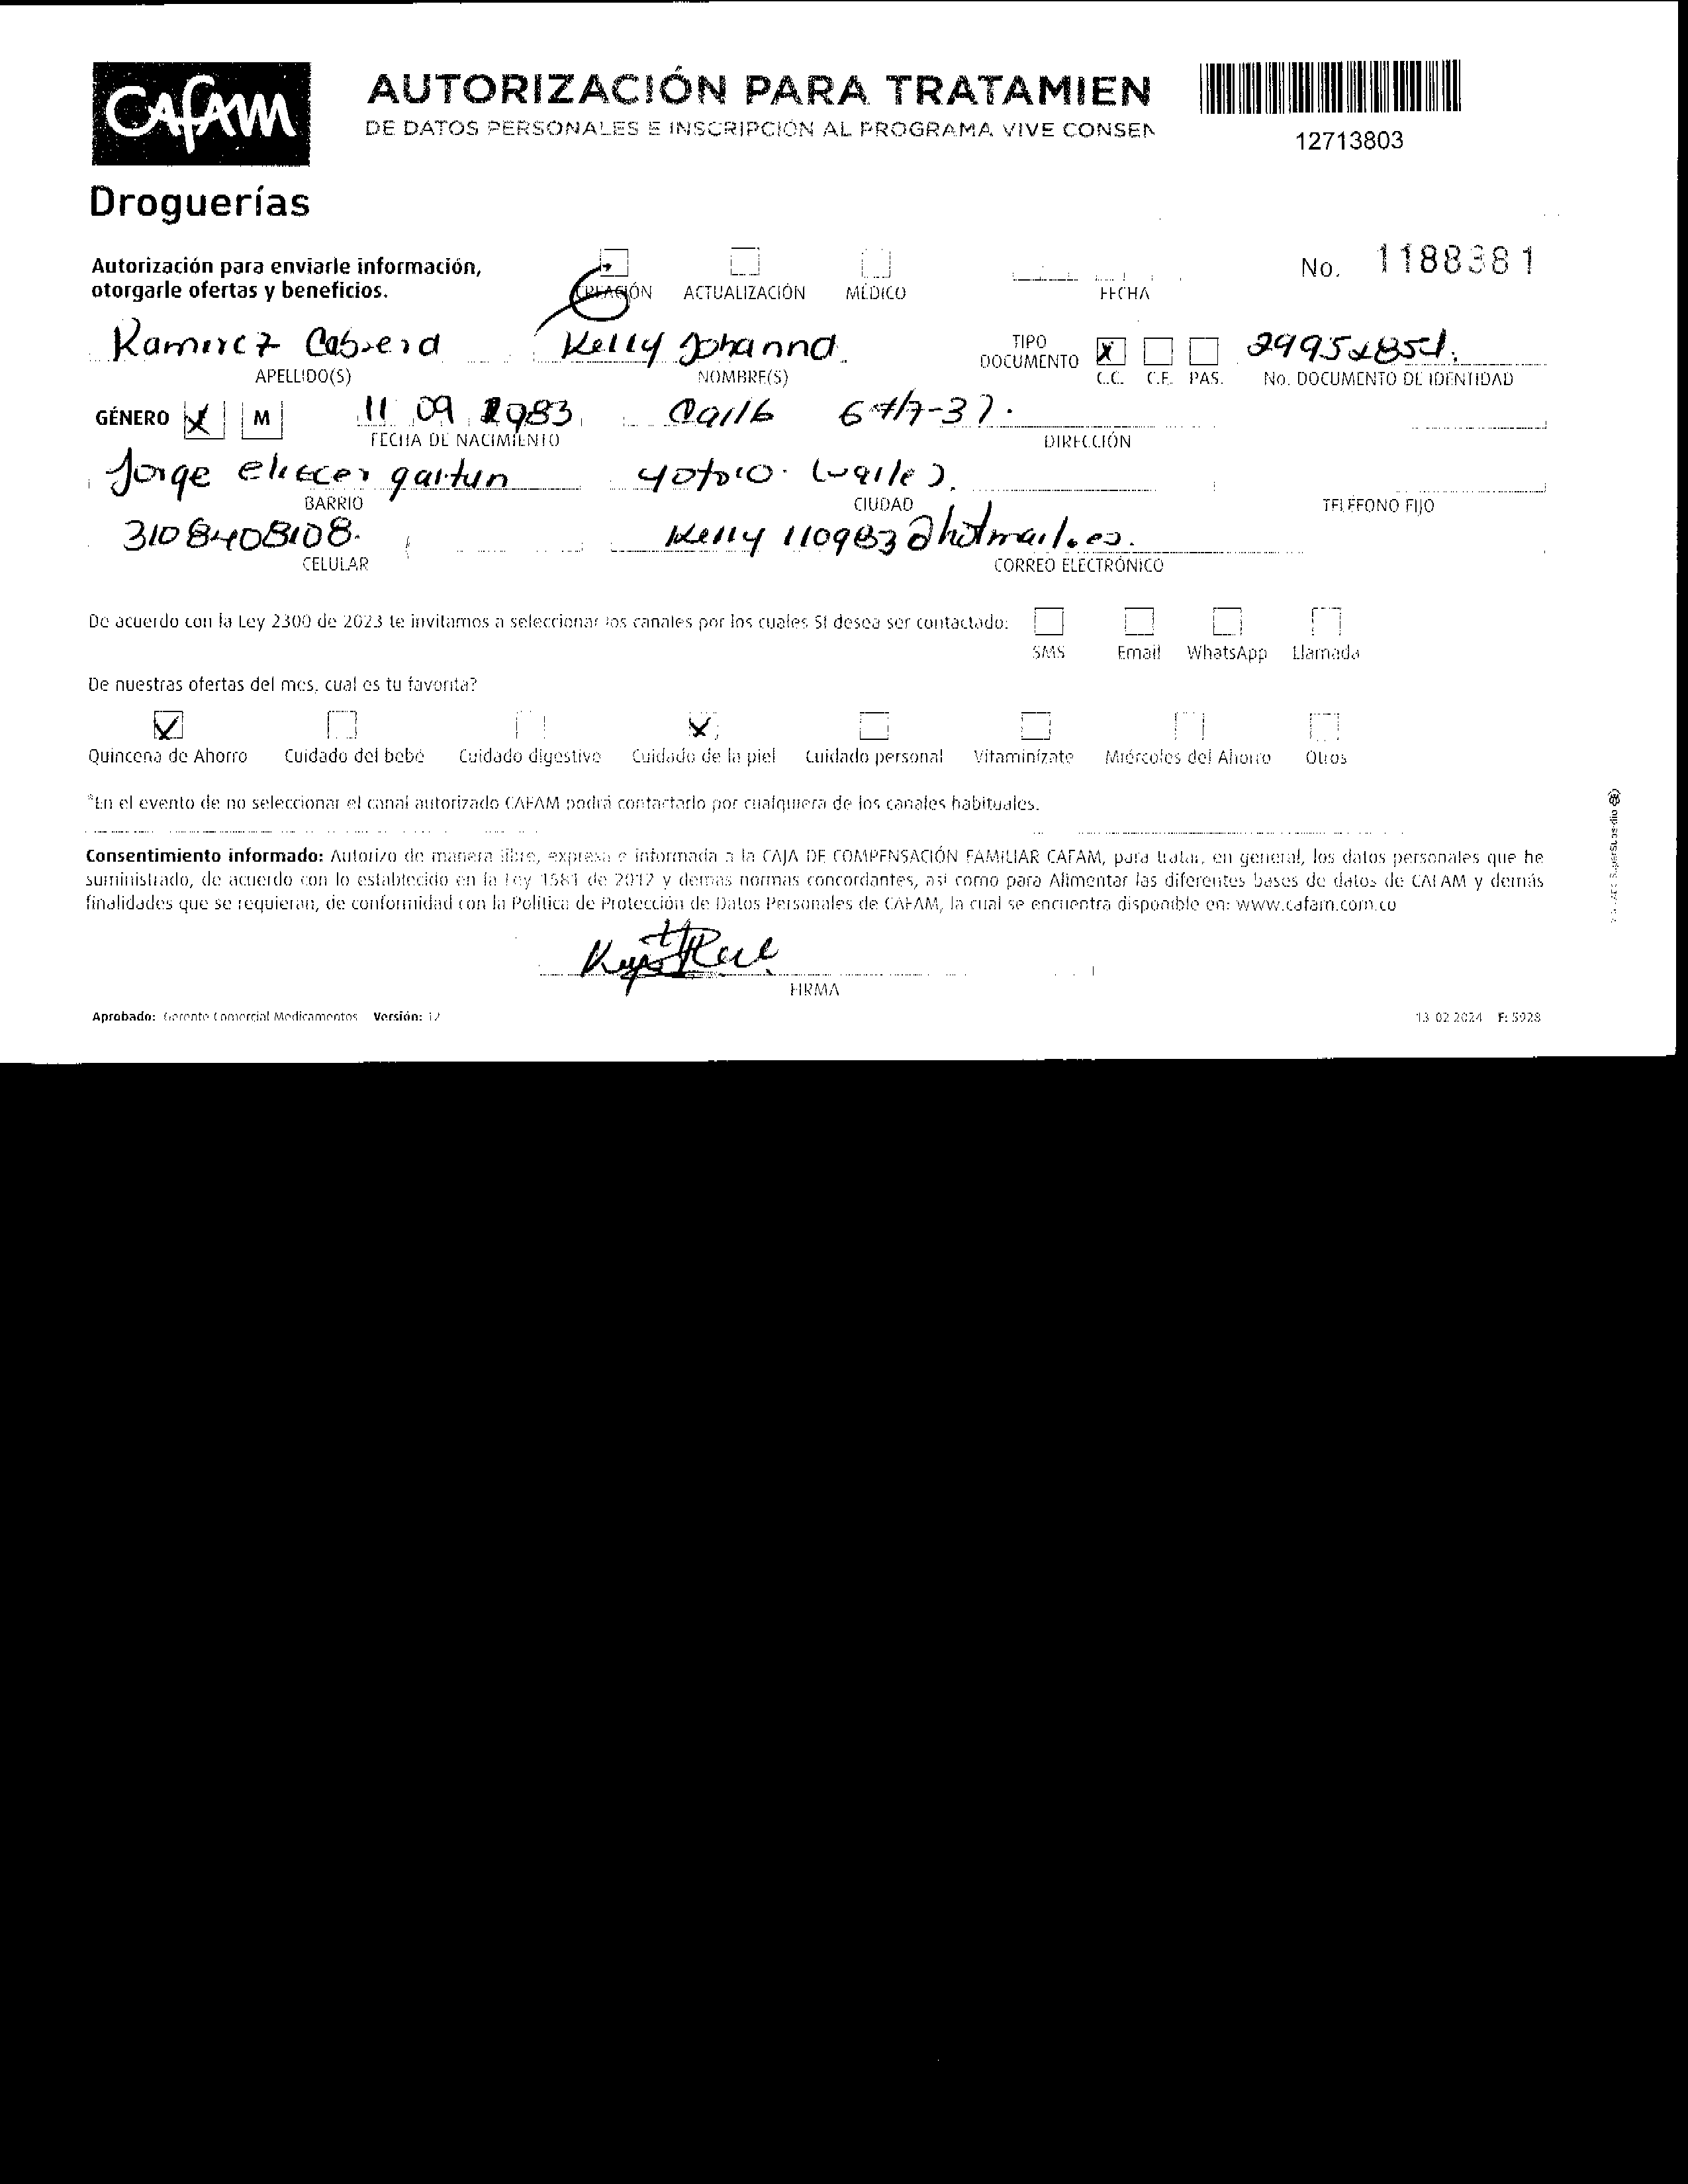 CAFAM
AUTORIZACIÓN PARA TRATAMIEN
DE DATOS PERSONALES E INSCRIPCIÓN AL PROGRAMA VIVE CONSEN
12713803
Droguerías
Autorización para enviarle información,
otorgarle ofertas y beneficios.
CREACIÓN ACTUALIZACIÓN MÉDICO
FECHA
No. 1188381
Ramirez Cabrera Kelly Johanna
TIPO DOCUMENTO X
APELLIDO(S) NOMBRE(S) C.C. C.E. PAS. No. DOCUMENTO DE IDENTIDAD
GÉNERO X M 11 09 1983
FECHA DE NACIMIENTO DIRECCIÓN
Jorge eliecer gaitan
BARRIO CIUDAD TELÉFONO FIJO
3108408108. Kelly 110983@hotmail.es.
CELULAR CORREO ELECTRÓNICO
De acuerdo con la Ley 2300 de 2023 te invitamos a seleccionar los canales por los cuales SI desea ser contactado:
SMS Email WhatsApp Llamada
De nuestras ofertas del mes, cual es tu favorita?
Quincena de Ahorro Cuidado del bebé Cuidado digestivo Cuidado de la piel Cuidado personal Vitaminízate Miércoles del Ahorro Otros
*En el evento de no seleccionar el canal autorizado CAFAM podrá contactarlo por cualquiera de los canales habituales.
Consentimiento informado: Autorizo de manera libre, expresa e informada a la CAJA DE COMPENSACIÓN FAMILIAR CAFAM, para tratar, en general, los datos personales que he
suministrado, de acuerdo con lo establecido en la Ley 1581 de 2012 y demás normas concordantes, así como para Alimentar las diferentes bases de datos de CAFAM y demás
finalidades que se requieran, de conformidad con la Política de Protección de Datos Personales de CAFAM, la cual se encuentra disponible en: www.cafam.com.co
FIRMA
Aprobado: Gerente Comercial Medicamentos Versión: 12
13 02 2024 F: 5928